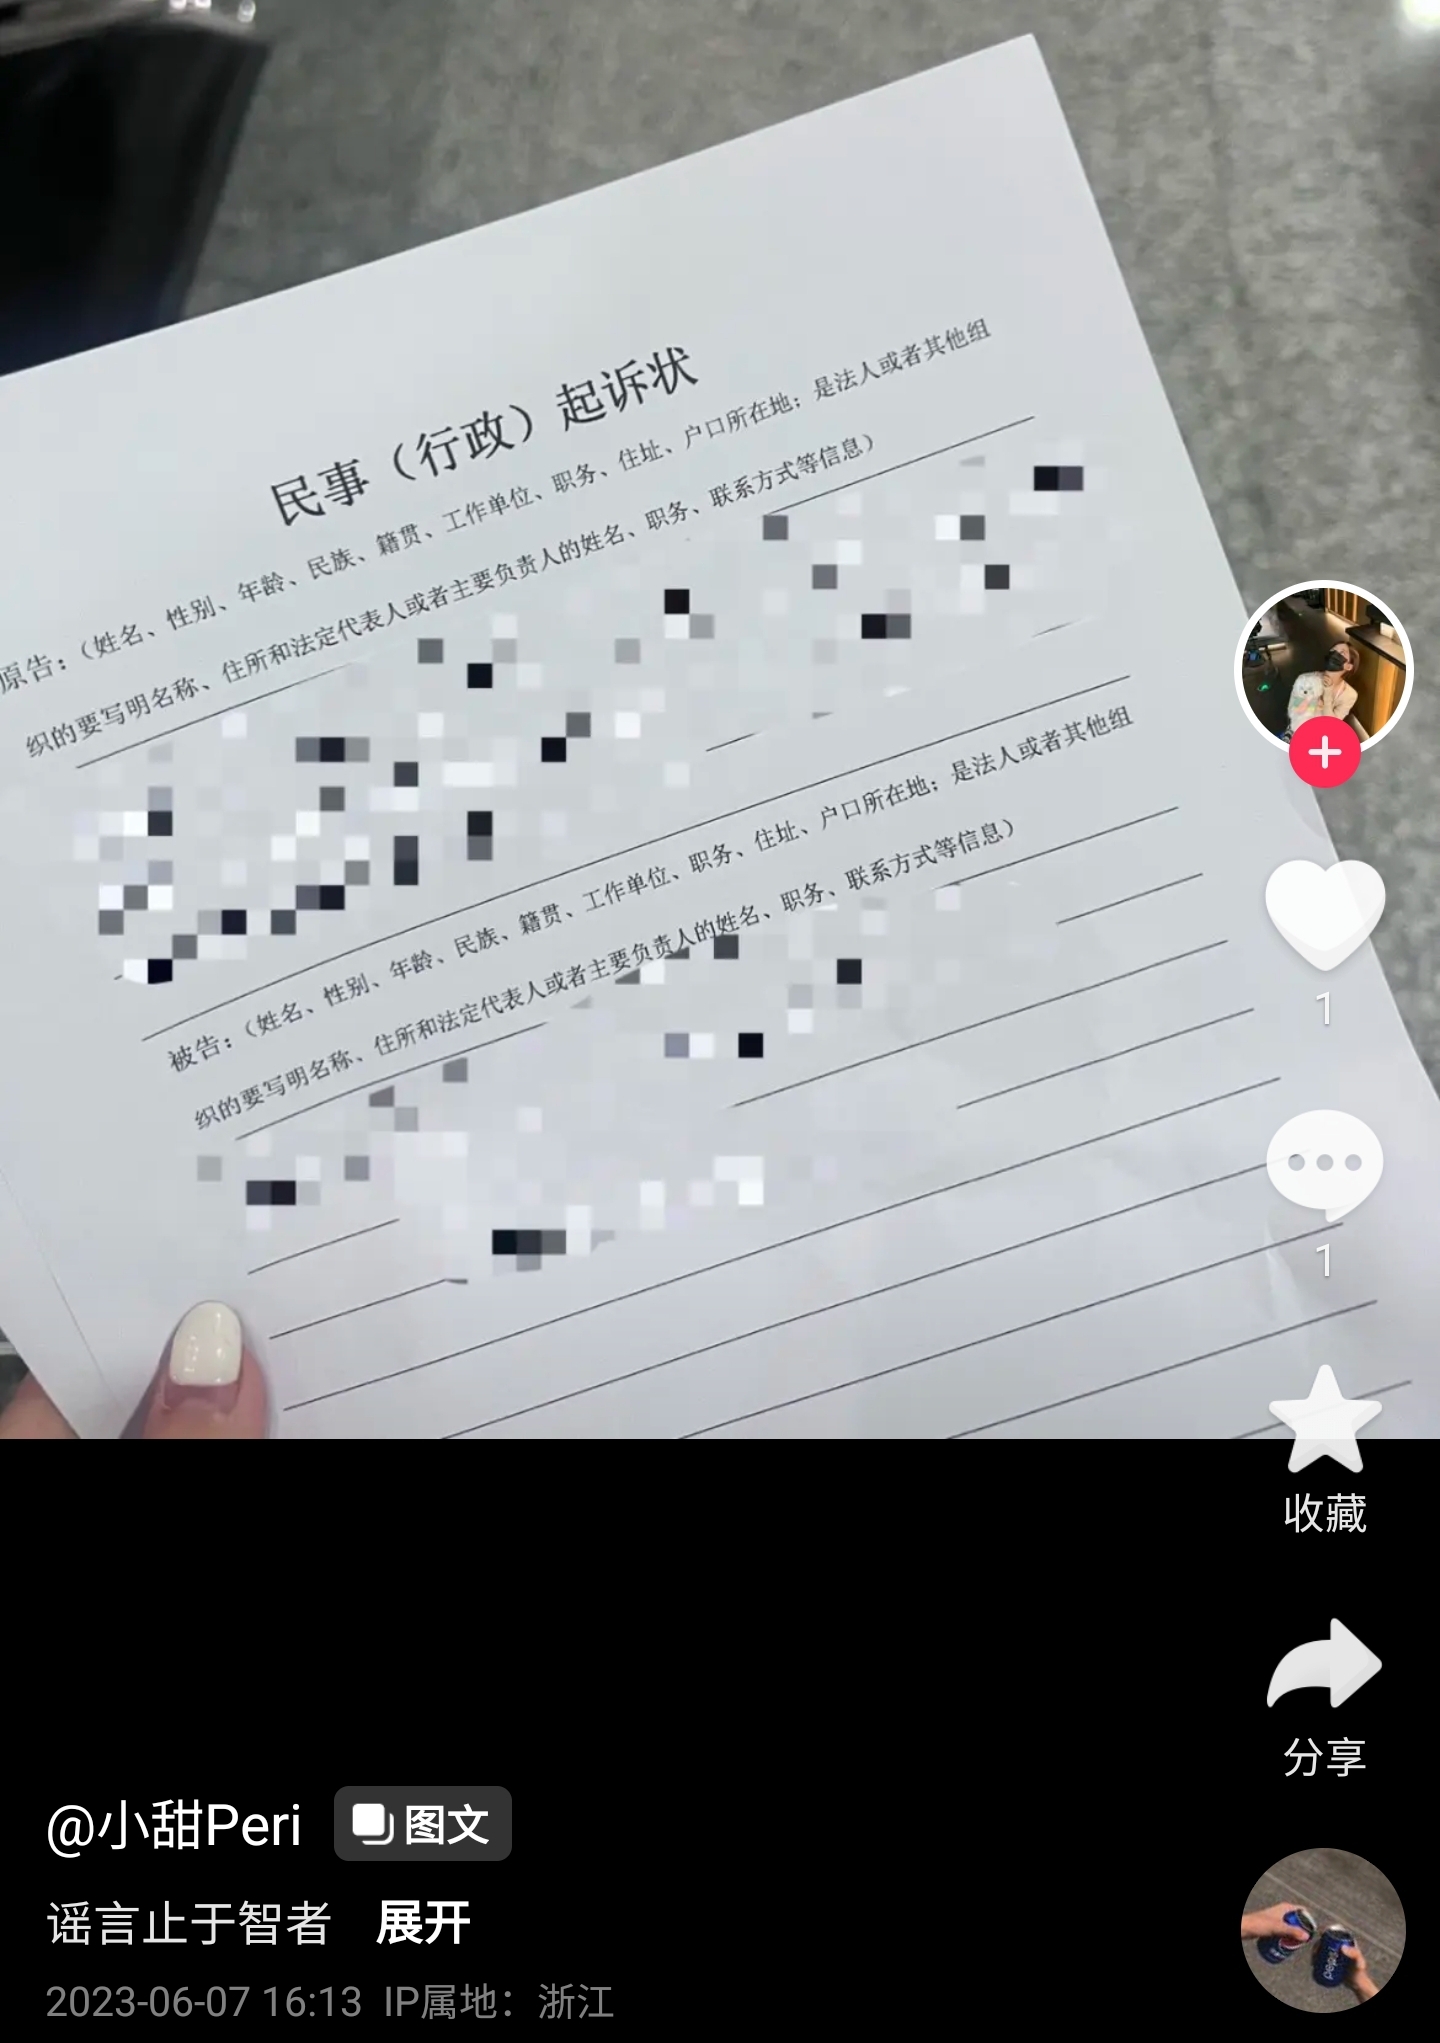 民事（行政）起诉状
原告：（姓名、性别、年龄、民族、籍贯、工作单位、职务、住址、户口所在地；是法人或者其他组
织的要写明名称、住所和法定代表人或者主要负责人的姓名、职务、联系方式等信息）
被告：（姓名、性别、年龄、民族、籍贯、工作单位、职务、住址、户口所在地；是法人或者其他组
织的要写明名称、住所和法定代表人或者主要负责人的姓名、职务、联系方式等信息）
1
1
收藏
分享
@小甜Peri 图文
谣言止于智者 展开
2023-06-07 16:13 IP属地：浙江
pepsi